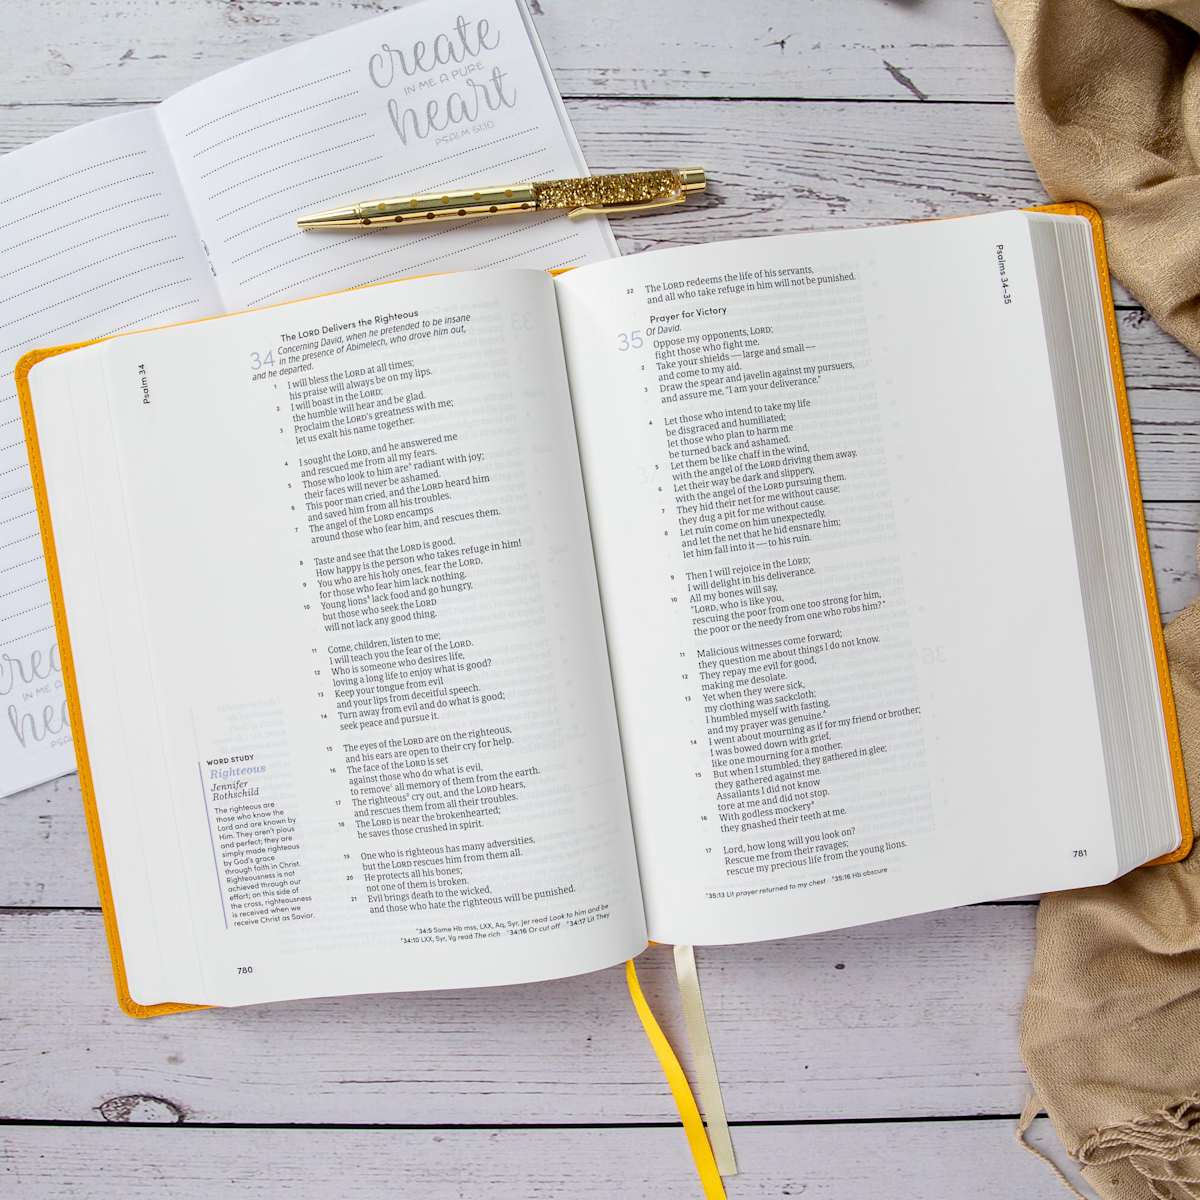 create
IN ME A PURE
heart
PSALM 51:10
Psalm 34
The LORD Delivers the Righteous
34 Concerning David, when he pretended to be insane
in the presence of Abimelech, who drove him out,
and he departed.
1 I will bless the LORD at all times;
his praise will always be on my lips.
2 I will boast in the LORD;
the humble will hear and be glad.
3 Proclaim the LORD's greatness with me;
let us exalt his name together.
4 I sought the LORD, and he answered me
and rescued me from all my fears.
5 Those who look to him are radiant with joy;
their faces will never be ashamed.
6 This poor man cried, and the LORD heard him
and saved him from all his troubles.
7 The angel of the LORD encamps
around those who fear him, and rescues them.
8 Taste and see that the LORD is good.
How happy is the person who takes refuge in him!
9 You who are his holy ones, fear the LORD,
for those who fear him lack nothing.
10 Young lions lack food and go hungry,
but those who seek the LORD
will not lack any good thing.
11 Come, children, listen to me;
I will teach you the fear of the LORD.
12 Who is someone who desires life,
loving a long life to enjoy what is good?
13 Keep your tongue from evil
and your lips from deceitful speech.
14 Turn away from evil and do what is good;
seek peace and pursue it.
15 The eyes of the LORD are on the righteous,
and his ears are open to their cry for help.
16 The face of the LORD is set
against those who do what is evil,
to remove all memory of them from the earth.
17 The righteous cry out, and the LORD hears,
and rescues them from all their troubles.
18 The LORD is near the brokenhearted;
he saves those crushed in spirit.
19 One who is righteous has many adversities,
but the LORD rescues him from them all.
20 He protects all his bones;
not one of them is broken.
21 Evil brings death to the wicked,
and those who hate the righteous will be punished.
34:5 Some Hb mss, LXX, Aq, Syr, Jer read Look to him and be
34:10 LXX, Syr, Vg read The rich 34:16 Or cut off 34:17 Lit They
WORD STUDY
Righteous
Jennifer
Rothschild
The righteous are
those who know the
Lord and are known by
Him. They aren't pious
and perfect; they are
simply made righteous
by God's grace
through faith in Christ.
Righteousness is not
achieved through our
effort; on this side of
the cross, righteousness
is received when we
receive Christ as Savior.
780
Psalms 34–35
22 The LORD redeems the life of his servants,
and all who take refuge in him will not be punished.
Prayer for Victory
35 Of David.
Oppose my opponents, LORD;
fight those who fight me.
2 Take your shields — large and small —
and come to my aid.
3 Draw the spear and javelin against my pursuers,
and assure me, "I am your deliverance."
4 Let those who intend to take my life
be disgraced and humiliated;
let those who plan to harm me
be turned back and ashamed.
5 Let them be like chaff in the wind,
with the angel of the LORD driving them away.
6 Let their way be dark and slippery,
with the angel of the LORD pursuing them.
7 They hid their net for me without cause;
they dug a pit for me without cause.
8 Let ruin come on him unexpectedly,
and let the net that he hid ensnare him;
let him fall into it — to his ruin.
9 Then I will rejoice in the LORD;
I will delight in his deliverance.
10 All my bones will say,
"LORD, who is like you,
rescuing the poor from one too strong for him,
the poor or the needy from one who robs him?"
11 Malicious witnesses come forward;
they question me about things I do not know.
12 They repay me evil for good,
making me desolate.
13 Yet when they were sick,
my clothing was sackcloth;
I humbled myself with fasting,
and my prayer was genuine.
14 I went about mourning as if for my friend or brother;
I was bowed down with grief,
like one mourning for a mother.
15 But when I stumbled, they gathered in glee;
they gathered against me.
Assailants I did not know
tore at me and did not stop.
16 With godless mockery
they gnashed their teeth at me.
17 Lord, how long will you look on?
Rescue me from their ravages;
rescue my precious life from the young lions.
35:13 Lit prayer returned to my chest 35:16 Hb obscure
781